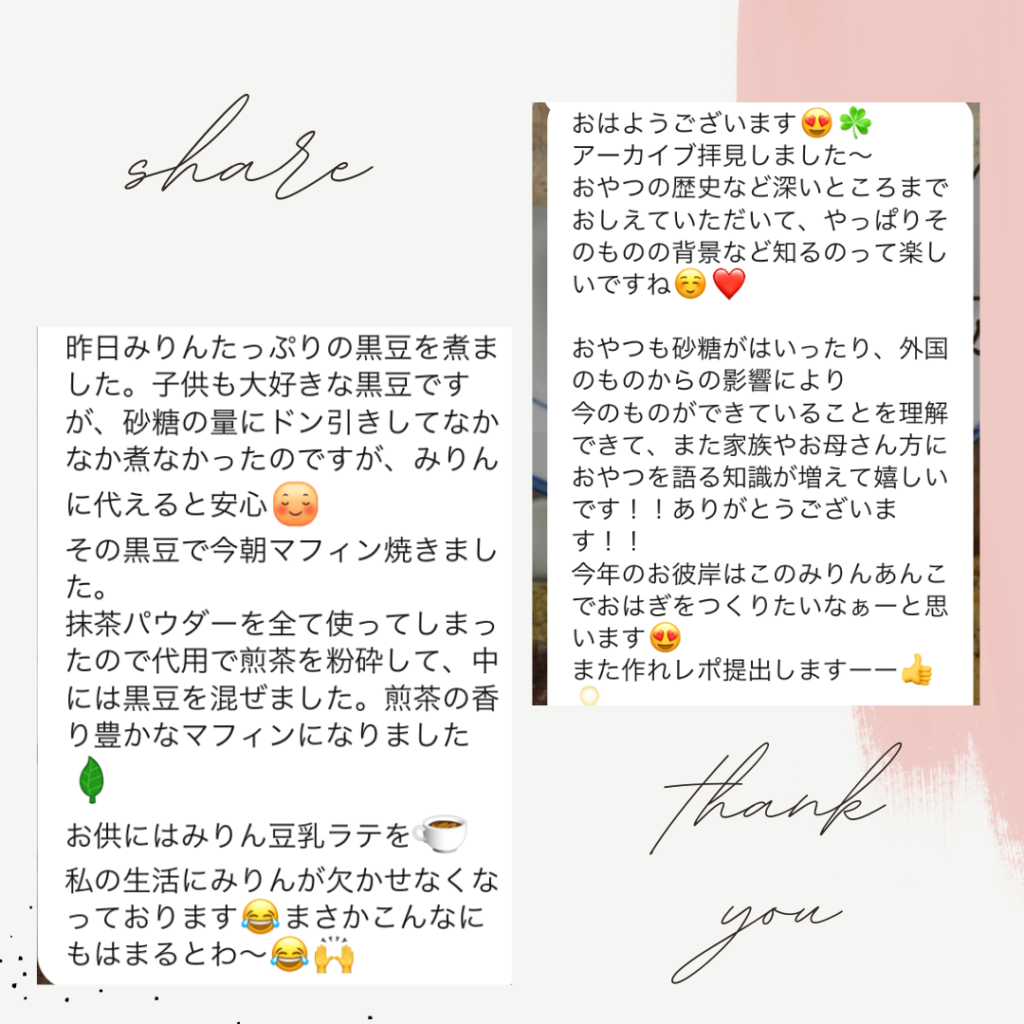 share
昨日みりんたっぷりの黒豆を煮ま
した。子供も大好きな黒豆です
が、砂糖の量にドン引きしてなか
なか煮なかったのですが、みりん
に代えると安心😌
その黒豆で今朝マフィン焼きまし
た。
抹茶パウダーを全て使ってしまっ
たので代用で煎茶を粉砕して、中
には黒豆を混ぜました。煎茶の香
り豊かなマフィンになりました
🍃
お供にはみりん豆乳ラテを☕
私の生活にみりんが欠かせなくな
っております😂まさかこんなに
もはまるとわ〜😂🙌
おはようございます😍☘️
アーカイブ拝見しました〜
おやつの歴史など深いところまで
おしえていただいて、やっぱりそ
のものの背景など知るのって楽し
いですね☺️❤️
おやつも砂糖がはいったり、外国
のものからの影響により
今のものができていることを理解
できて、また家族やお母さん方に
おやつを語る知識が増えて嬉しい
です！！ありがとうございま
す！！
今年のお彼岸はこのみりんあんこ
でおはぎをつくりたいなぁーと思
います😍
また作れレポ提出しますーー👍
thank
you